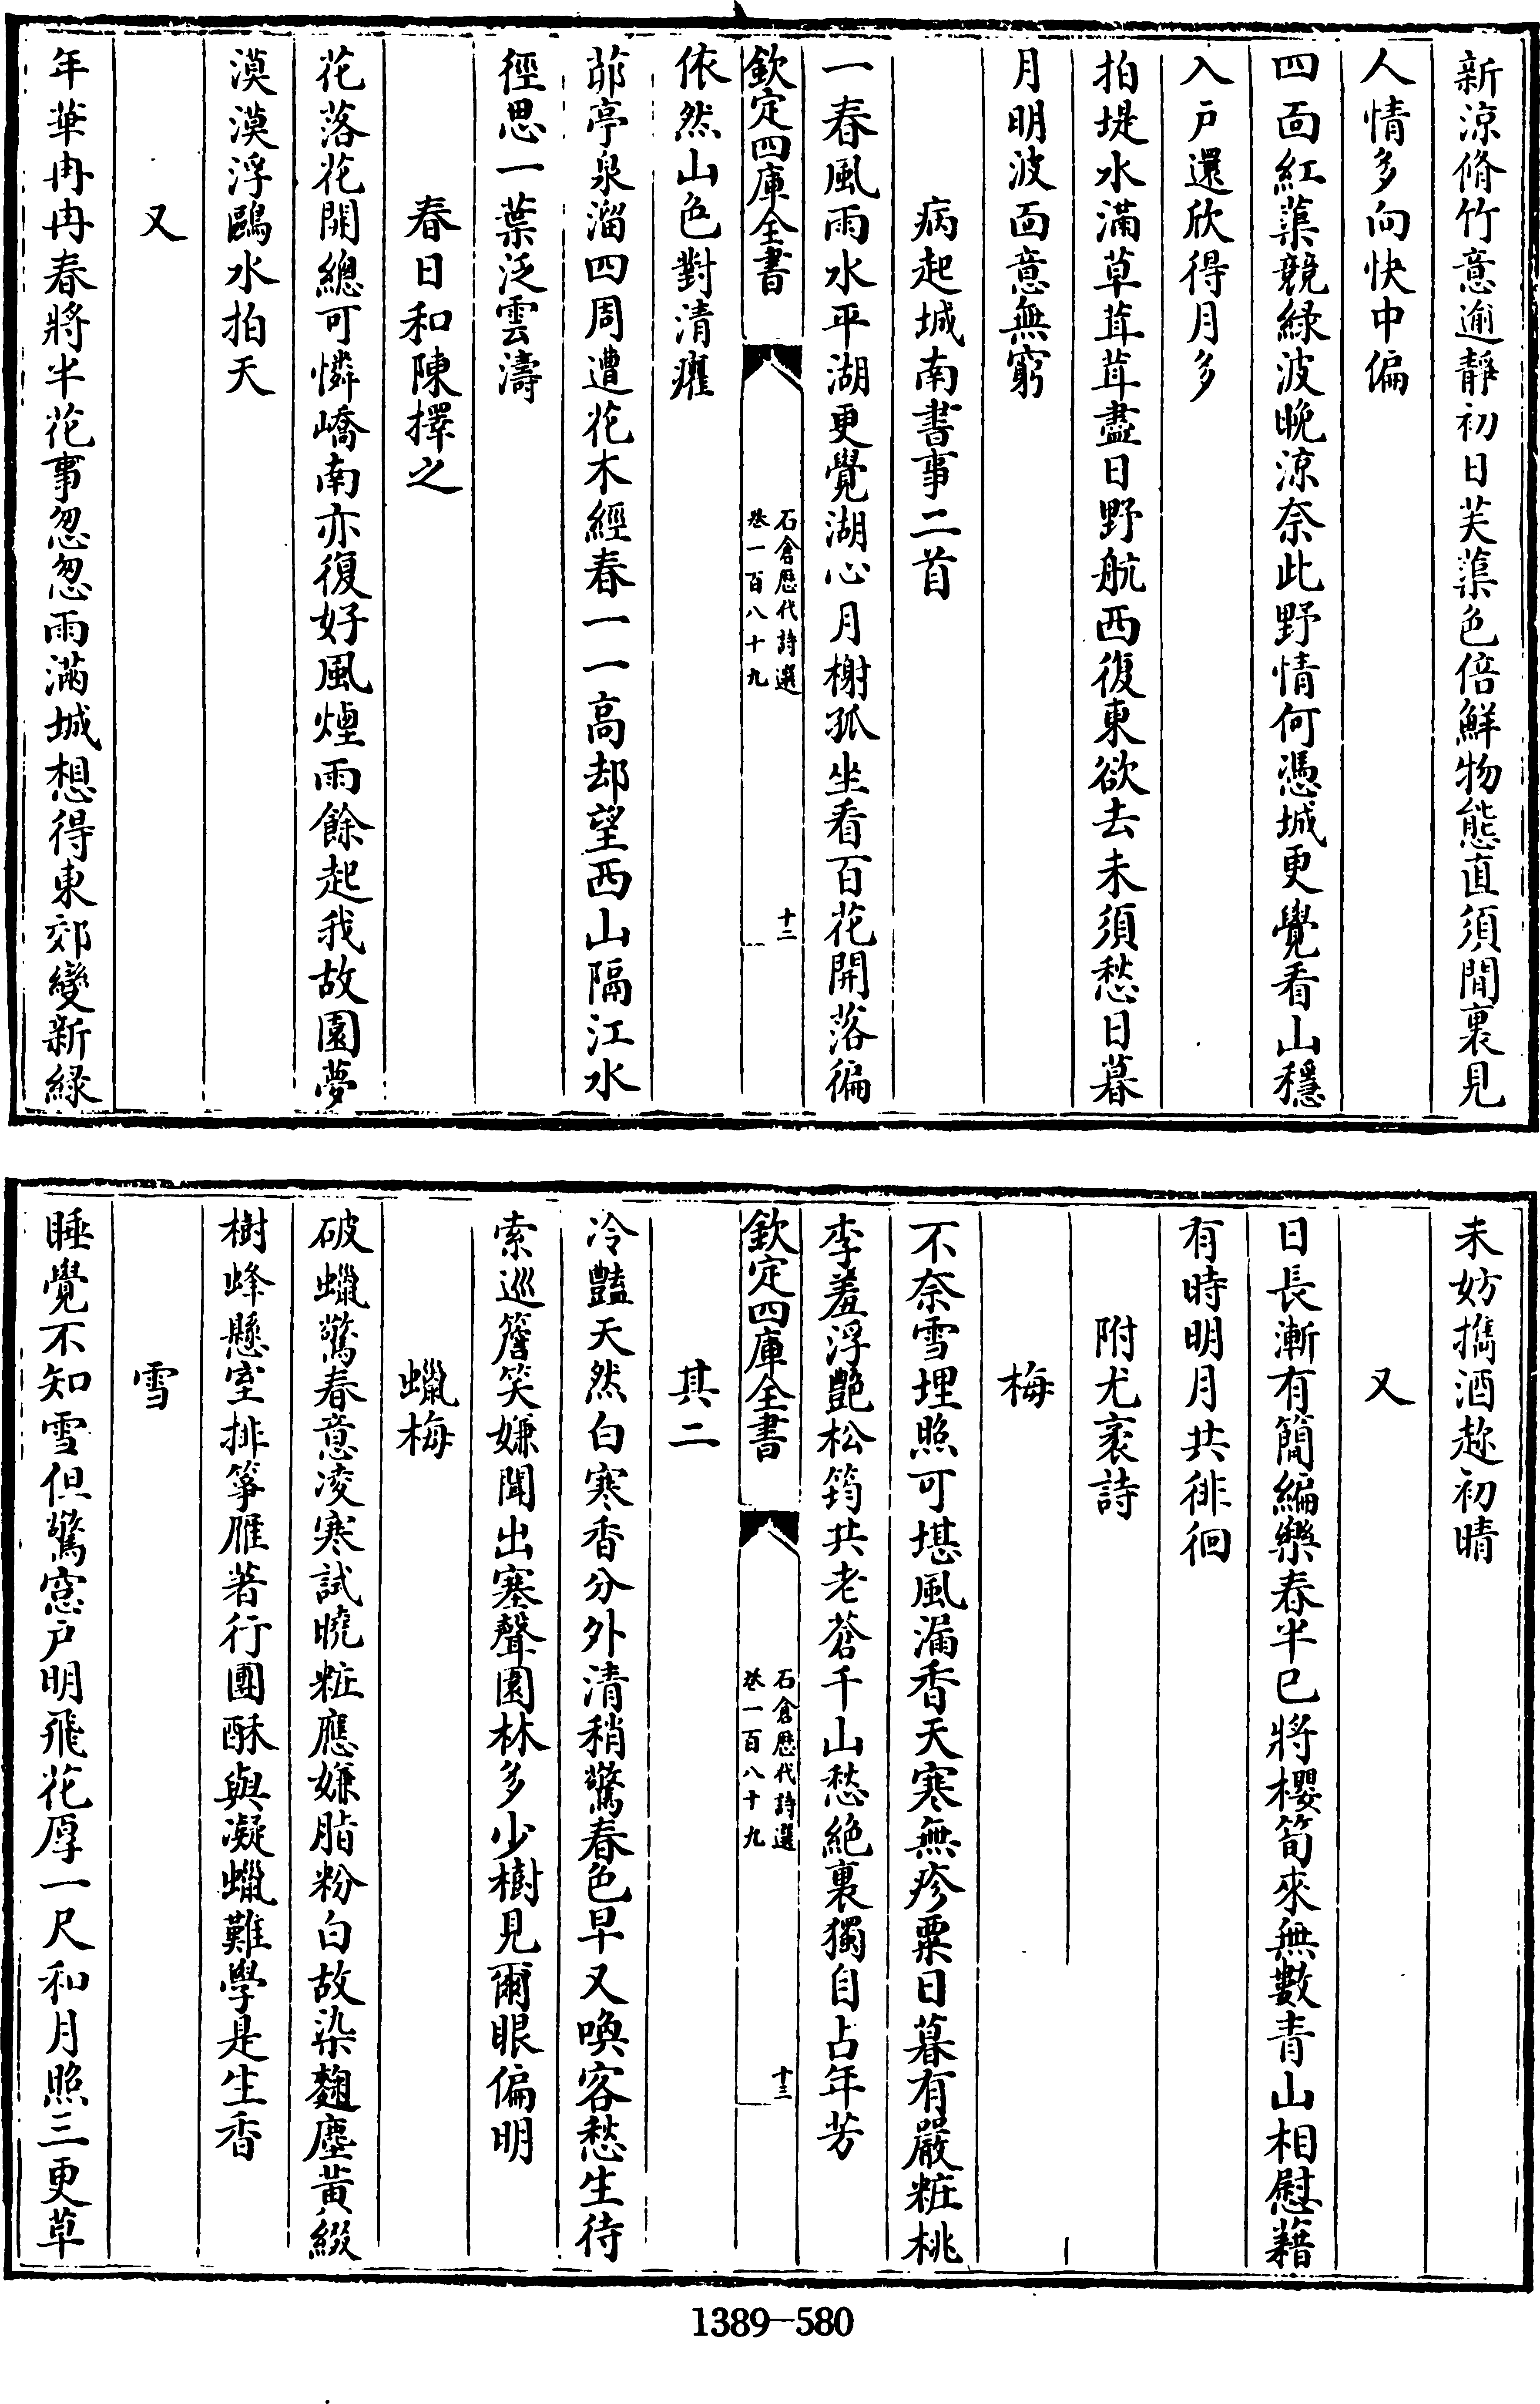 新涼脩竹意逾靜初日芙蕖色倍鮮物態直須閒裏見
人情多向快中偏
四面紅蕖競綠波晚涼奈此野情何憑城更覺看山穩
入戸還欣得月多
拍堤水滿草茸茸盡日野航西復東欲去未須愁日暮
月明波面意無窮
病起城南書事二首
一春風雨水平湖更覺湖心月榭孤坐看百花開落徧
欽定四庫全書
石倉歴代詩選
卷一百八十九
十二
依然山色對清癯
茆亭泉溜四周遭花木經春一一高却望西山隔江水
徑思一葉泛雲濤
春日和陳擇之
花落花開總可憐嶠南亦復好風煙雨餘起我故園夢
漠漠浮鷗水拍天
又
年華冉冉春將半花事怱怱雨滿城想得東郊變新綠
未妨攜酒趂初晴
又
日長漸有簡編樂春半已將櫻筍來無數青山相慰藉
有時明月共徘徊
附尤袤詩
梅
不奈雪埋照可堪風漏香天寒無疹粟日暮有嚴粧桃
李羞浮艷松筠共老蒼千山愁絶裏獨自占年芳
欽定四庫全書
石倉歴代詩選
卷一百八十九
十三
其二
冷豔天然白寒香分外清稍驚春色早又喚客愁生待
索巡簷笑嫌聞出塞聲園林多少樹見爾眼偏明
蠟梅
破蠟驚春意凌寒試曉粧應嫌脂粉白故染麴塵黄綴
樹蜂懸室排箏雁著行團酥與凝蠟難學是生香
雪
睡覺不知雪但驚窓戸明飛花厚一尺和月照三更草
1389—580